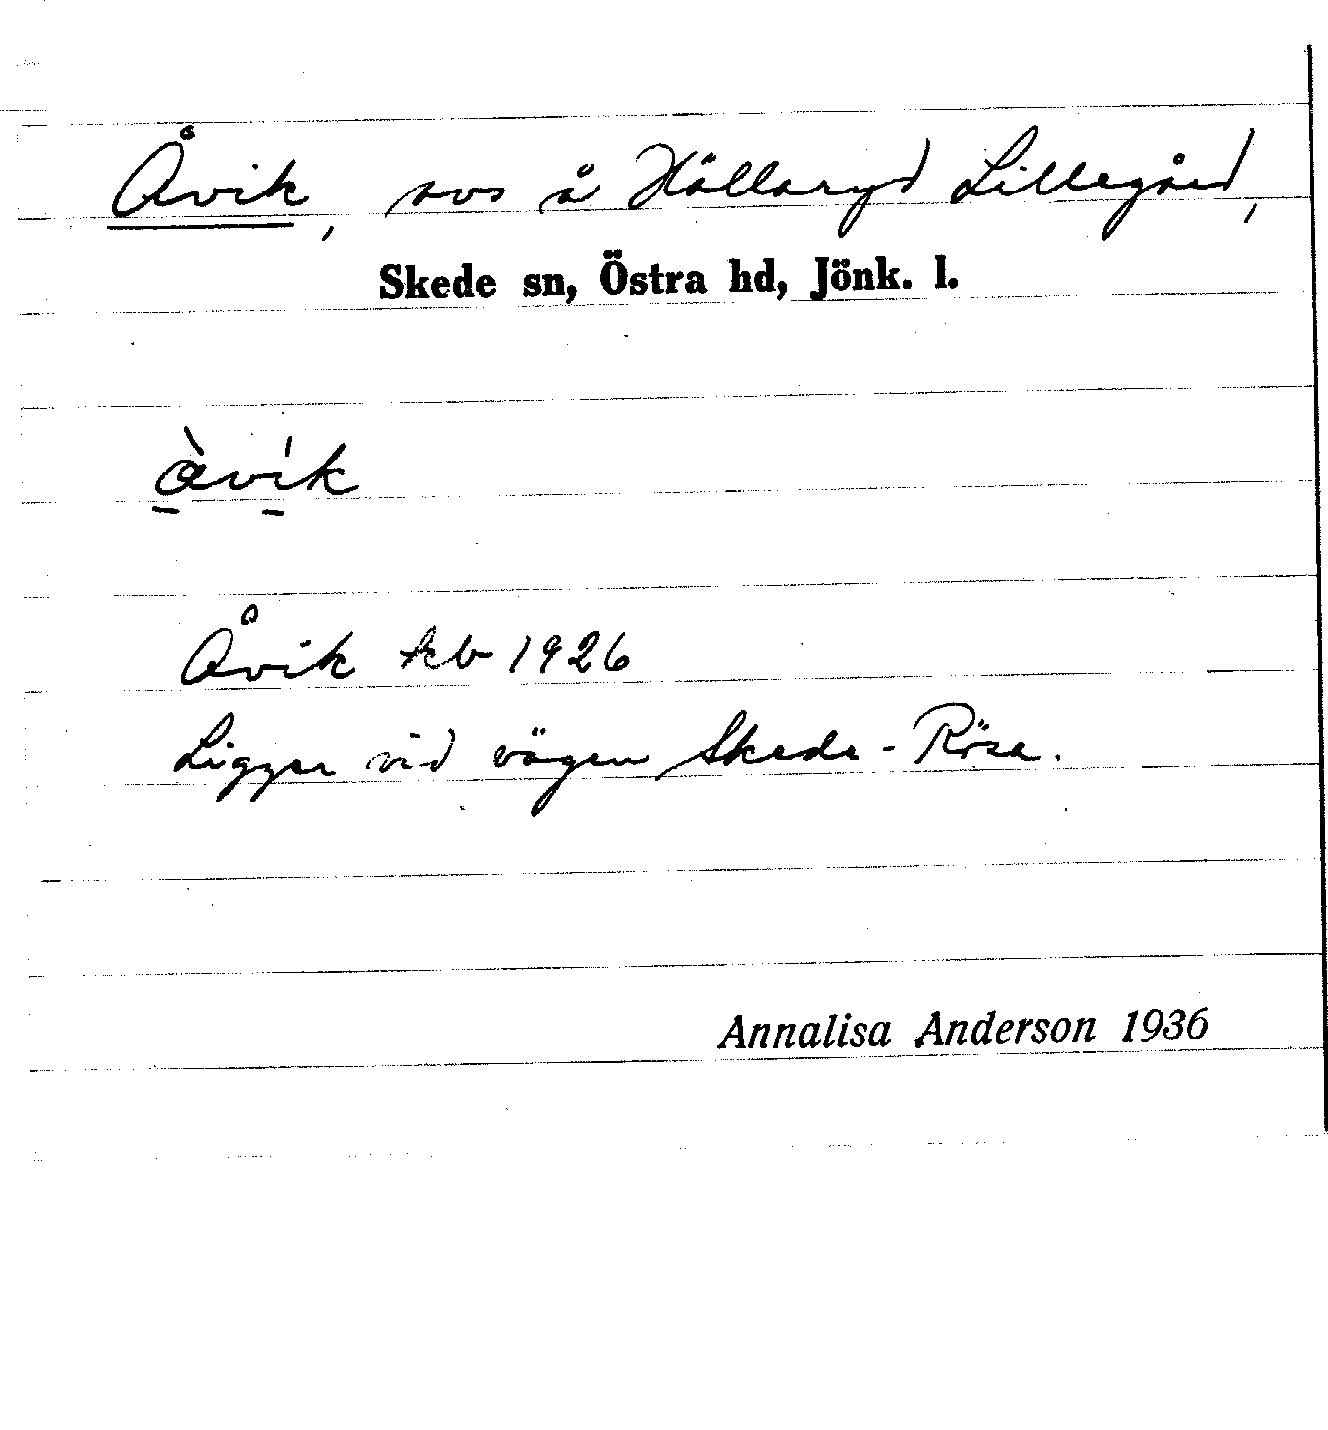 Åvik, avs å Hällaryd Lillegård,
Skede sn, Östra hd, Jönk. l.
åvik
Åvik kb 1926
Ligger vid vägen Skede - Rösa.
Annalisa Anderson 1936